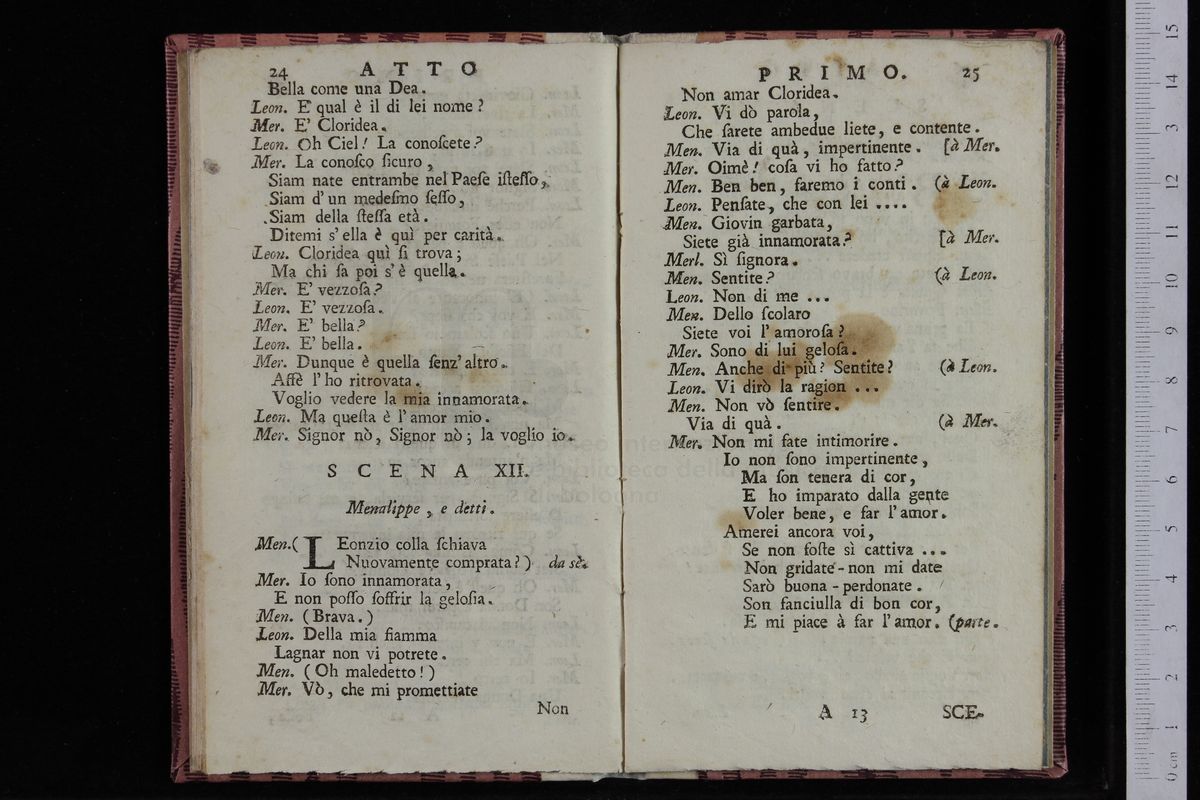 24 ATTO
Bella come una Dea.
Leon. E qual è il di lei nome?
Mer. E' Cloridea.
Leon. Oh Ciel! La conoſcete?
Mer. La conoſco ſicuro,
Siam nate entrambe nel Paeſe iſteſſo,
Siam d'un medeſmo ſeſſo,
Siam della ſteſſa età.
Ditemi s'ella è quì per carità.
Leon. Cloridea quì ſi trova;
Ma chi ſa poi s'è quella.
Mer. E' vezzoſa?
Leon. E' vezzoſa.
Mer. E' bella?
Leon. E' bella.
Mer. Dunque è quella ſenz'altro.
Affè l'ho ritrovata.
Voglio vedere la mia innamorata.
Leon. Ma queſta è l'amor mio.
Mer. Signor nò, Signor nò; la voglio io.
SCENA XII.
Menalippe, e detti.
Men. (LEonzio colla ſchiava
Nuovamente comprata?) da sè.
Mer. Io ſono innamorata,
E non poſſo ſoffrir la geloſia.
Men. (Brava.)
Leon. Della mia fiamma
Lagnar non vi potrete.
Men. (Oh maledetto!)
Mer. Vò, che mi promettiate
Non
PRIMO. 25
Non amar Cloridea.
Leon. Vi dò parola,
Che ſarete ambedue liete, e contente.
Men. Via di quà, impertinente. [à Mer.
Mer. Oimè! coſa vi ho fatto?
Men. Ben ben, faremo i conti. (à Leon.
Leon. Penſate, che con lei ....
Men. Giovin garbata,
Siete già innamorata? [à Mer.
Merl. Sì ſignora.
Men. Sentite? (à Leon.
Leon. Non di me ...
Men. Dello ſcolaro
Siete voi l'amoroſa?
Mer. Sono di lui geloſa.
Men. Anche di più? Sentite? (à Leon.
Leon. Vi dirò la ragion ...
Men. Non vò ſentire.
Via di quà. (à Mer.
Mer. Non mi fate intimorire.
Io non ſono impertinente,
Ma ſon tenera di cor,
E ho imparato dalla gente
Voler bene, e far l'amor.
Amerei ancora voi,
Se non foſte sì cattiva ...
Non gridate-non mi date
Sarò buona-perdonate.
Son fanciulla di bon cor,
E mi piace à far l'amor. (parte.
A 13 SCE-